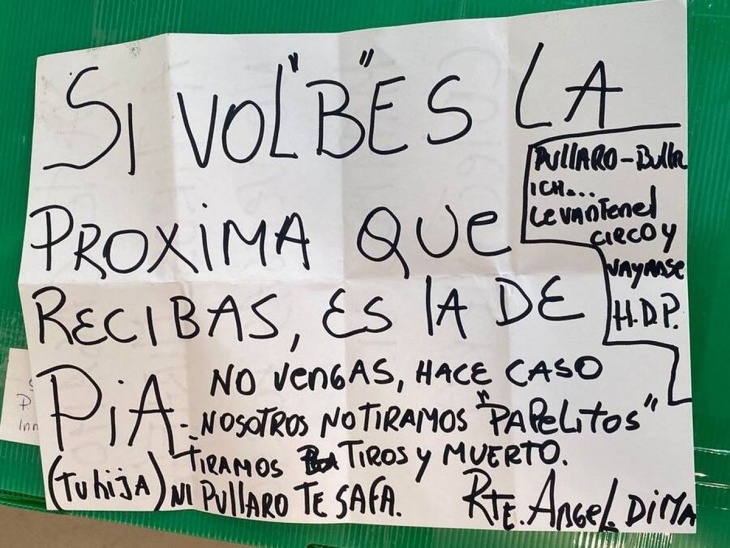 SI VOL"B"ES LA
PROXIMA QUE
RECIBAS, ES LA DE
PIA
(TU hija)
PULLARO-Bullr
ICH...
LevanTenel
CIRCO y
VAYANSE
H.D.P.
NO VengAS, HACE CASO
-NOSOTROS NO TIRAMOS "PAPELITOS"
TIRAMOS TIROS y MUERTO.
NI PULLARO TE SAFA.
RTE. ANGEL DIMA